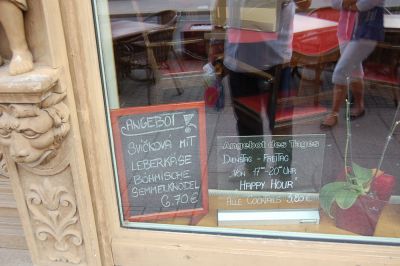 ANGEBOT!
SVÍČKOVÁ MIT
LEBERKÄSE
BÖHMISCHE
SEMMELKNÖDEL
6.70 €
Angebot des Tages
DIENSTAG - FREITAG
"VON 17-20 UHR"
"HAPPY HOUR"
ALLE COCKTAILS 3,80 €